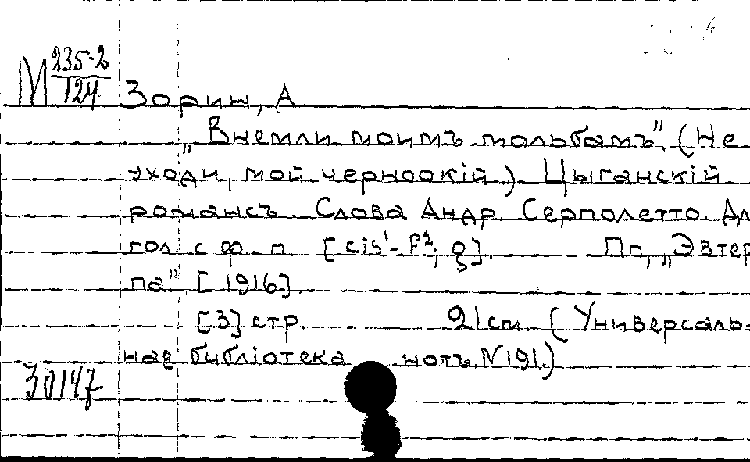 М 235-2
124
Зорин, А
„Внемли моимъ мольбамъ" (Не
уходи, мой черноокій). Цыганскій
романсъ Слова Андр. Серполетто. Дл
гол с ф. п. [cis¹-f²; g]. Пг., „Эвтер
па" [1916].
[3] стр. 21 см. (Универсаль-
ная библіотека нотъ. №191.)
30147